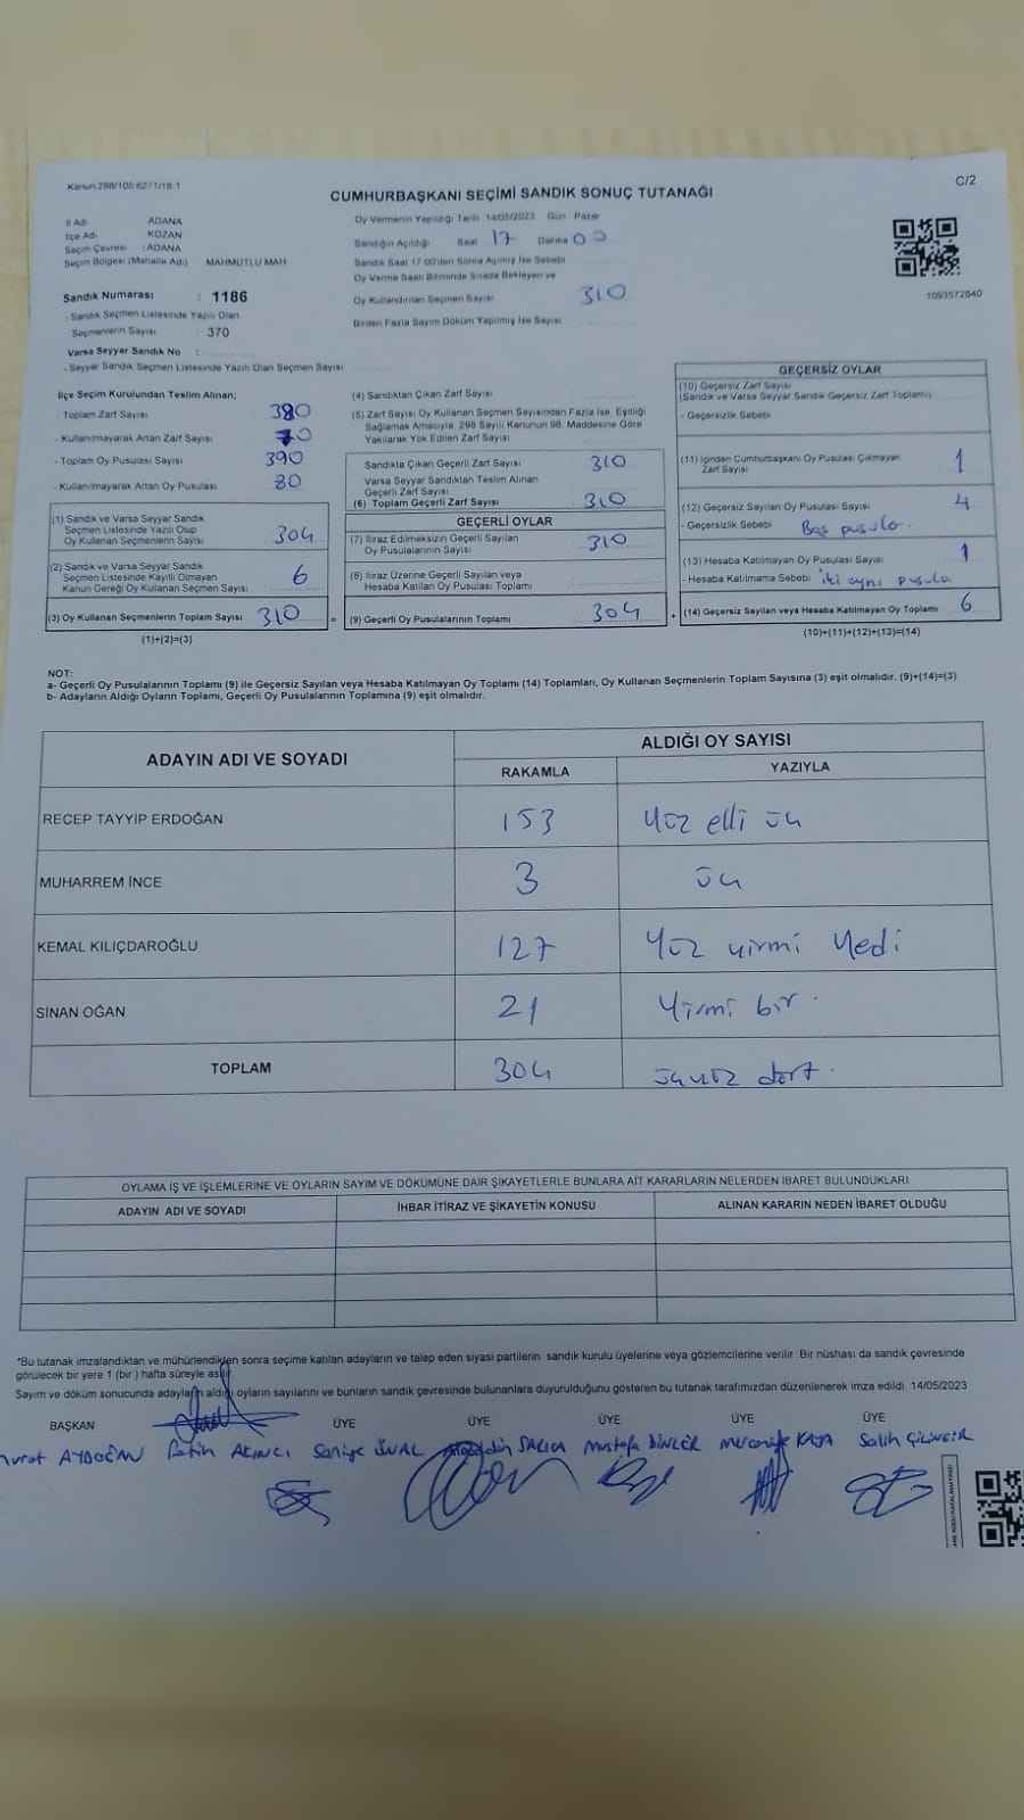 Kanun:298/105 627 1/18.1
C/2
CUMHURBAŞKANI SEÇİMİ SANDIK SONUÇ TUTANAĞI
İl Adı ADANA
İlçe Adı KOZAN
Seçim Çevresi : ADANA
Seçim Bölgesi (Mahalle Adı) MAHMUTLU MAH
Sandık Numarası : 1186
- Sandık Seçmen Listesinde Yazılı Olan
Seçmenlerin Sayısı : 370
Varsa Seyyar Sandık No :
- Seyyar Sandık Seçmen Listesinde Yazılı Olan Seçmen Sayısı
Oy Vermenin Yapıldığı Tarih 14/05/2023 Gün Pazar
Sandığın Açıldığı Saat 17 Dakika 00
Sandık Saat 17.00'den Sonra Açılmış İse Sebebi
Oy Verme Saati Bitiminde Sırada Bekleyen ve
Oy Kullandırılan Seçmen Sayısı 310
Birden Fazla Sayım Döküm Yapılmış İse Sayısı
1093572840
İlçe Seçim Kurulundan Teslim Alınan;
- Toplam Zarf Sayısı 380
- Kullanılmayarak Artan Zarf Sayısı 70
- Toplam Oy Pusulası Sayısı 390
- Kullanılmayarak Artan Oy Pusulası 80
(1) Sandık ve Varsa Seyyar Sandık
Seçmen Listesinde Yazılı Olup
Oy Kullanan Seçmenlerin Sayısı 304
(2) Sandık ve Varsa Seyyar Sandık
Seçmen Listesinde Kayıtlı Olmayan
Kanun Gereği Oy Kullanan Seçmen Sayısı 6
(3) Oy Kullanan Seçmenlerin Toplam Sayısı 310
(1)+(2)=(3)
(4) Sandıktan Çıkan Zarf Sayısı
(5) Zarf Sayısı Oy Kullanan Seçmen Sayısından Fazla İse, Eşitliği
Sağlamak Amacıyla, 298 Sayılı Kanunun 98. Maddesine Göre
Yakılarak Yok Edilen Zarf Sayısı
Sandıkta Çıkan Geçerli Zarf Sayısı 310
Varsa Seyyar Sandıktan Teslim Alınan
Geçerli Zarf Sayısı
(6) Toplam Geçerli Zarf Sayısı 310
GEÇERLİ OYLAR
(7) İtiraz Edilmeksizin Geçerli Sayılan
Oy Pusulalarının Sayısı 310
(8) İtiraz Üzerine Geçerli Sayılan veya
Hesaba Katılan Oy Pusulası Toplamı
= (9) Geçerli Oy Pusulalarının Toplamı 304
GEÇERSİZ OYLAR
(10) Geçersiz Zarf Sayısı
(Sandık ve Varsa Seyyar Sandık Geçersiz Zarf Toplamı)
- Geçersizlik Sebebi
(11) İçinden Cumhurbaşkanı Oy Pusulası Çıkmayan
Zarf Sayısı 1
(12) Geçersiz Sayılan Oy Pusulası Sayısı 4
- Geçersizlik Sebebi Boş pusula.
(13) Hesaba Katılmayan Oy Pusulası Sayısı 1
- Hesaba Katılmama Sebebi iki aynı pusula
+ (14) Geçersiz Sayılan veya Hesaba Katılmayan Oy Toplamı 6
(10)+(11)+(12)+(13)=(14)
NOT:
a- Geçerli Oy Pusulalarının Toplamı (9) ile Geçersiz Sayılan veya Hesaba Katılmayan Oy Toplamı (14) Toplamları, Oy Kullanan Seçmenlerin Toplam Sayısına (3) eşit olmalıdır. (9)+(14)=(3)
b- Adayların Aldığı Oyların Toplamı, Geçerli Oy Pusulalarının Toplamına (9) eşit olmalıdır.
ADAYIN ADI VE SOYADI ALDIĞI OY SAYISI
RAKAMLA YAZIYLA
RECEP TAYYİP ERDOĞAN 153 Yüz elli üç
MUHARREM İNCE 3 üç
KEMAL KILIÇDAROĞLU 127 Yüz yirmi Yedi
SİNAN OĞAN 21 Yirmi bir.
TOPLAM 304 üçyüz dört.
OYLAMA İŞ VE İŞLEMLERİNE VE OYLARIN SAYIM VE DÖKÜMÜNE DAİR ŞİKAYETLERLE BUNLARA AİT KARARLARIN NELERDEN İBARET BULUNDUKLARI
ADAYIN ADI VE SOYADI İHBAR İTİRAZ VE ŞİKAYETİN KONUSU ALINAN KARARIN NEDEN İBARET OLDUĞU
*Bu tutanak imzalandıktan ve mühürlendikten sonra seçime katılan adayların ve talep eden siyasi partilerin sandık kurulu üyelerine veya gözlemcilerine verilir. Bir nüshası da sandık çevresinde
görülecek bir yere 1 (bir) hafta süreyle asılır.
Sayım ve döküm sonucunda adayların aldığı oyların sayılarını ve bunların sandık çevresinde bulunanlara duyurulduğunu gösteren bu tutanak tarafımızdan düzenlenerek imza edildi. 14/05/2023
BAŞKAN ÜYE ÜYE ÜYE ÜYE ÜYE
AYDOĞAN Fatih AKINCI Saniye ÜNAL Mustafa DİNLER KAYA Salih